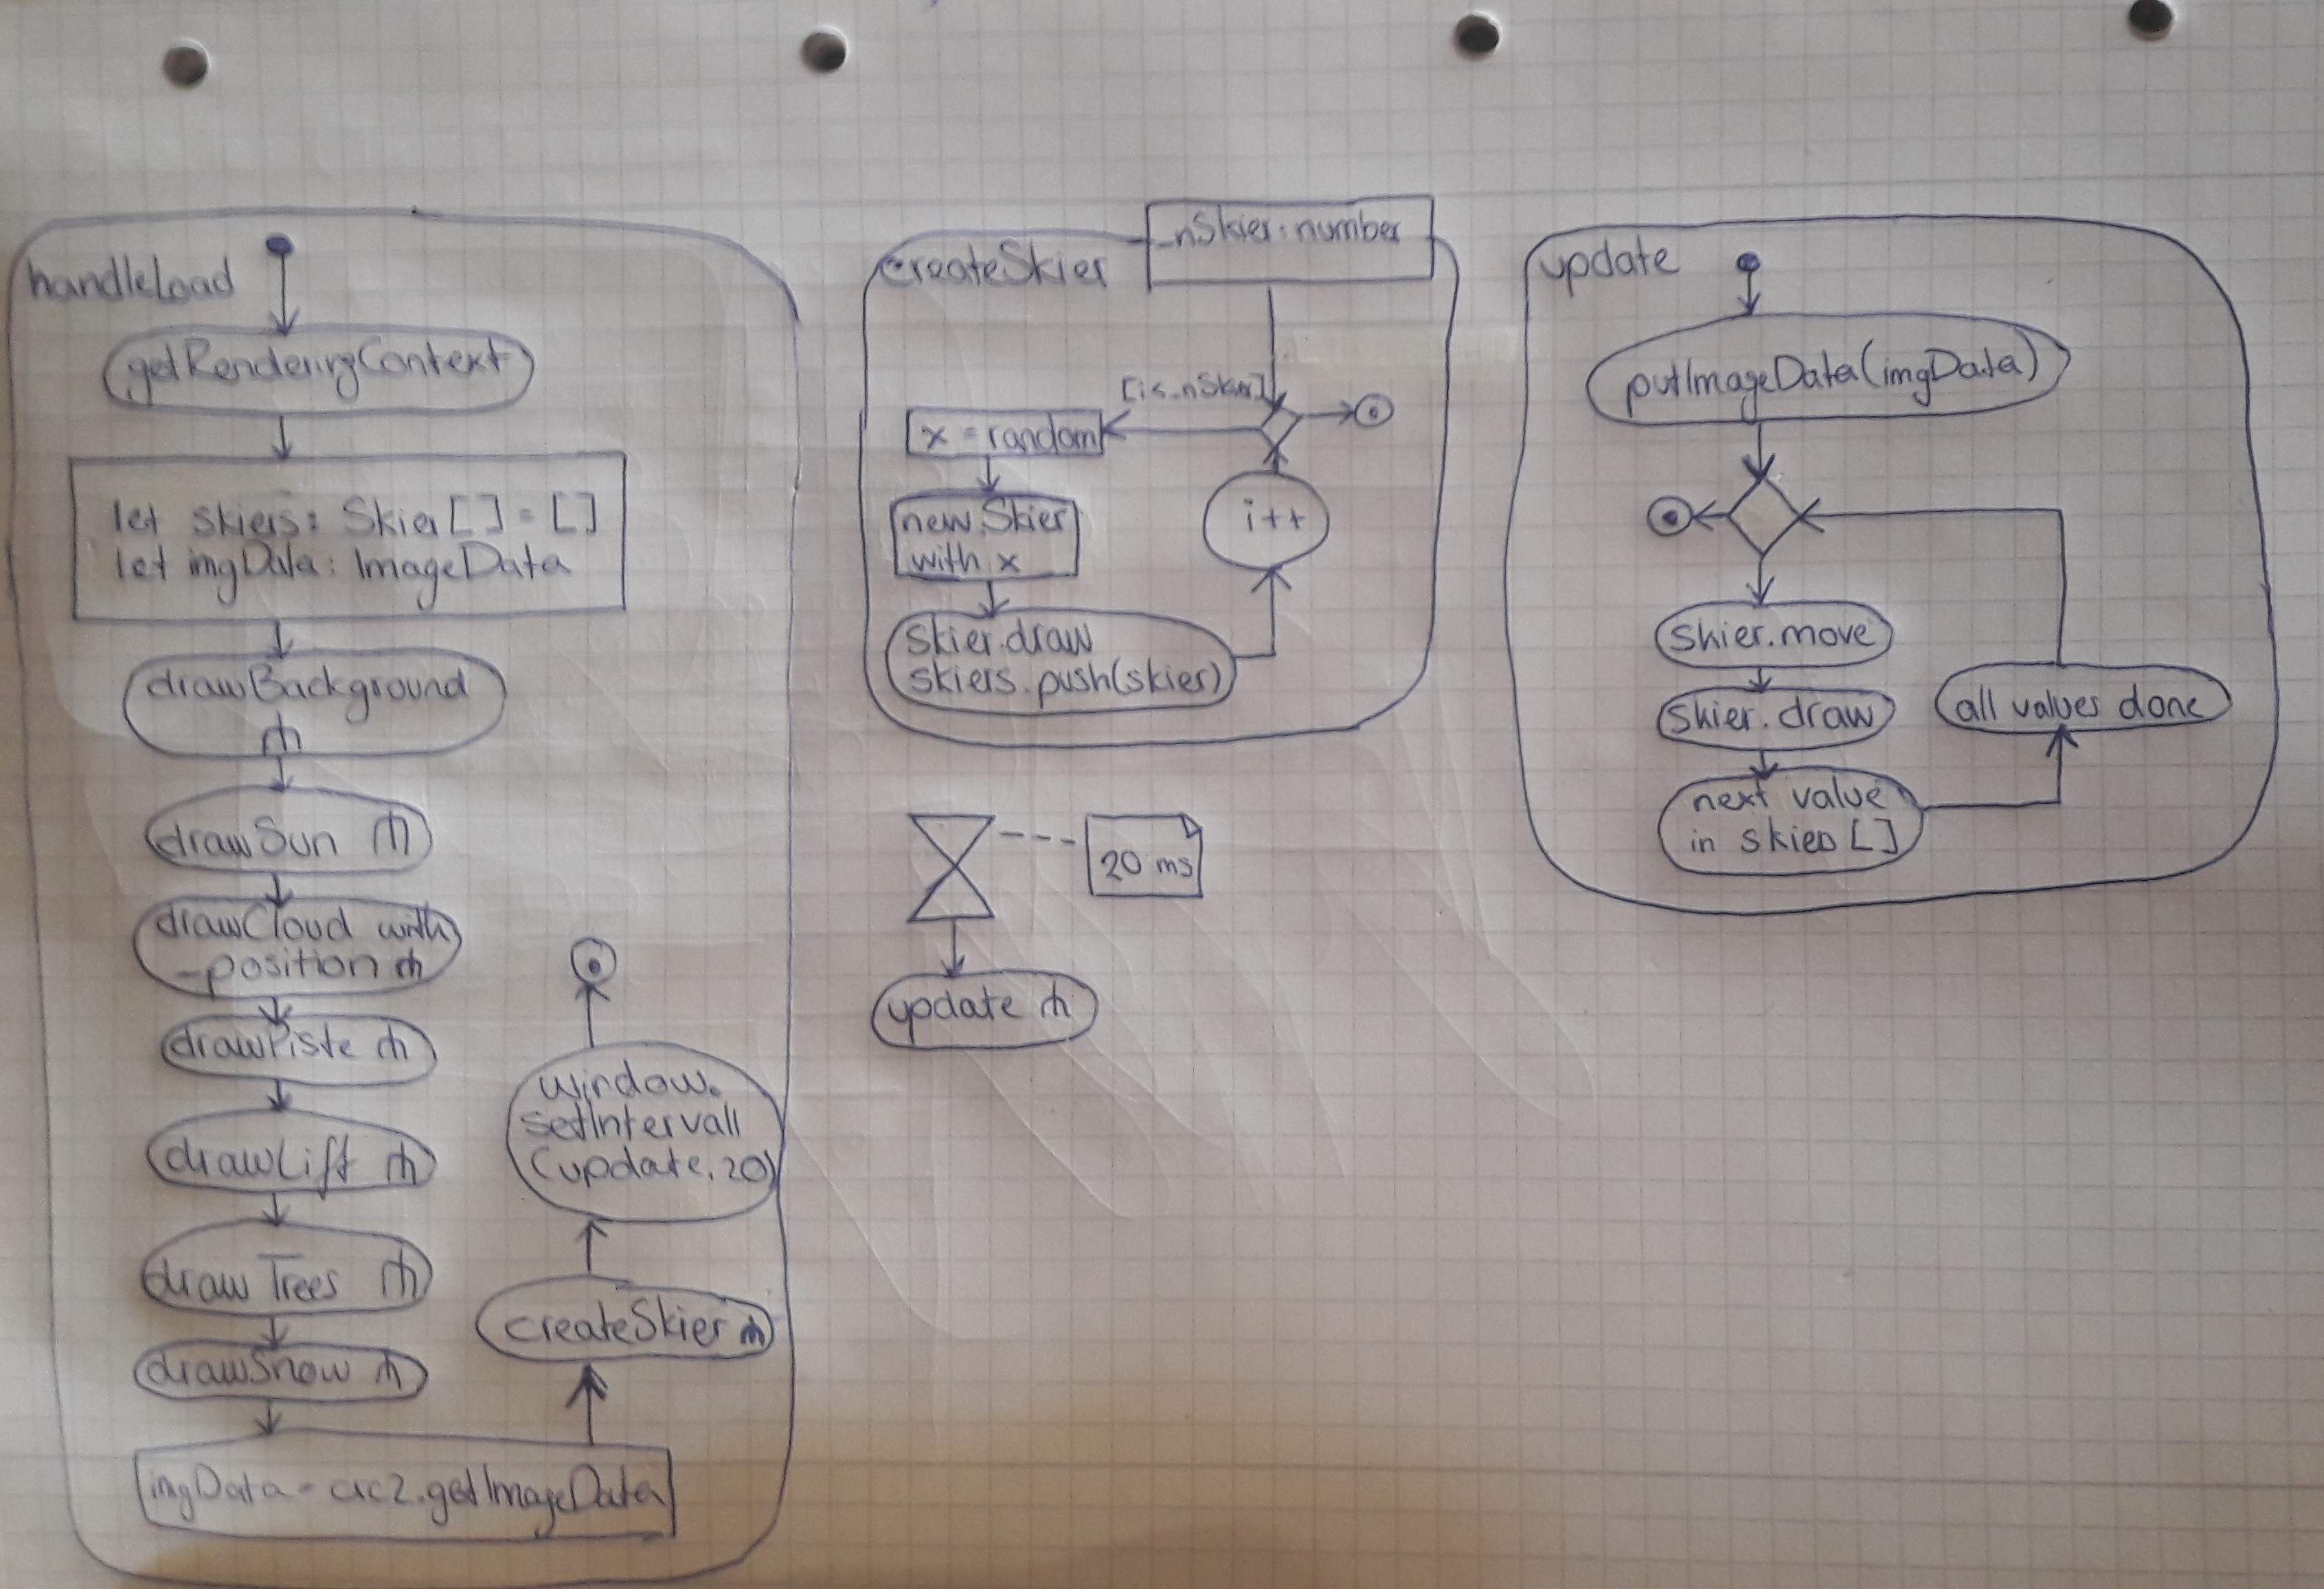 handleLoad
getRenderingContext
let skiers: Skier [] = []
let imgData: ImageData
drawBackground
drawSun
drawCloud with
_position
drawPiste
drawLift
draw Trees
drawSnow
imgData = crc2.getImageData
createSkier
window.
setIntervall
(update, 20)
createSkier
_nSkier: number
x = random
new Skier
with x
skier.draw
skiers.push(skier)
i++
20 ms
update
update
putImageData(imgData)
skier.move
skier.draw
next value
in skiers []
all values done